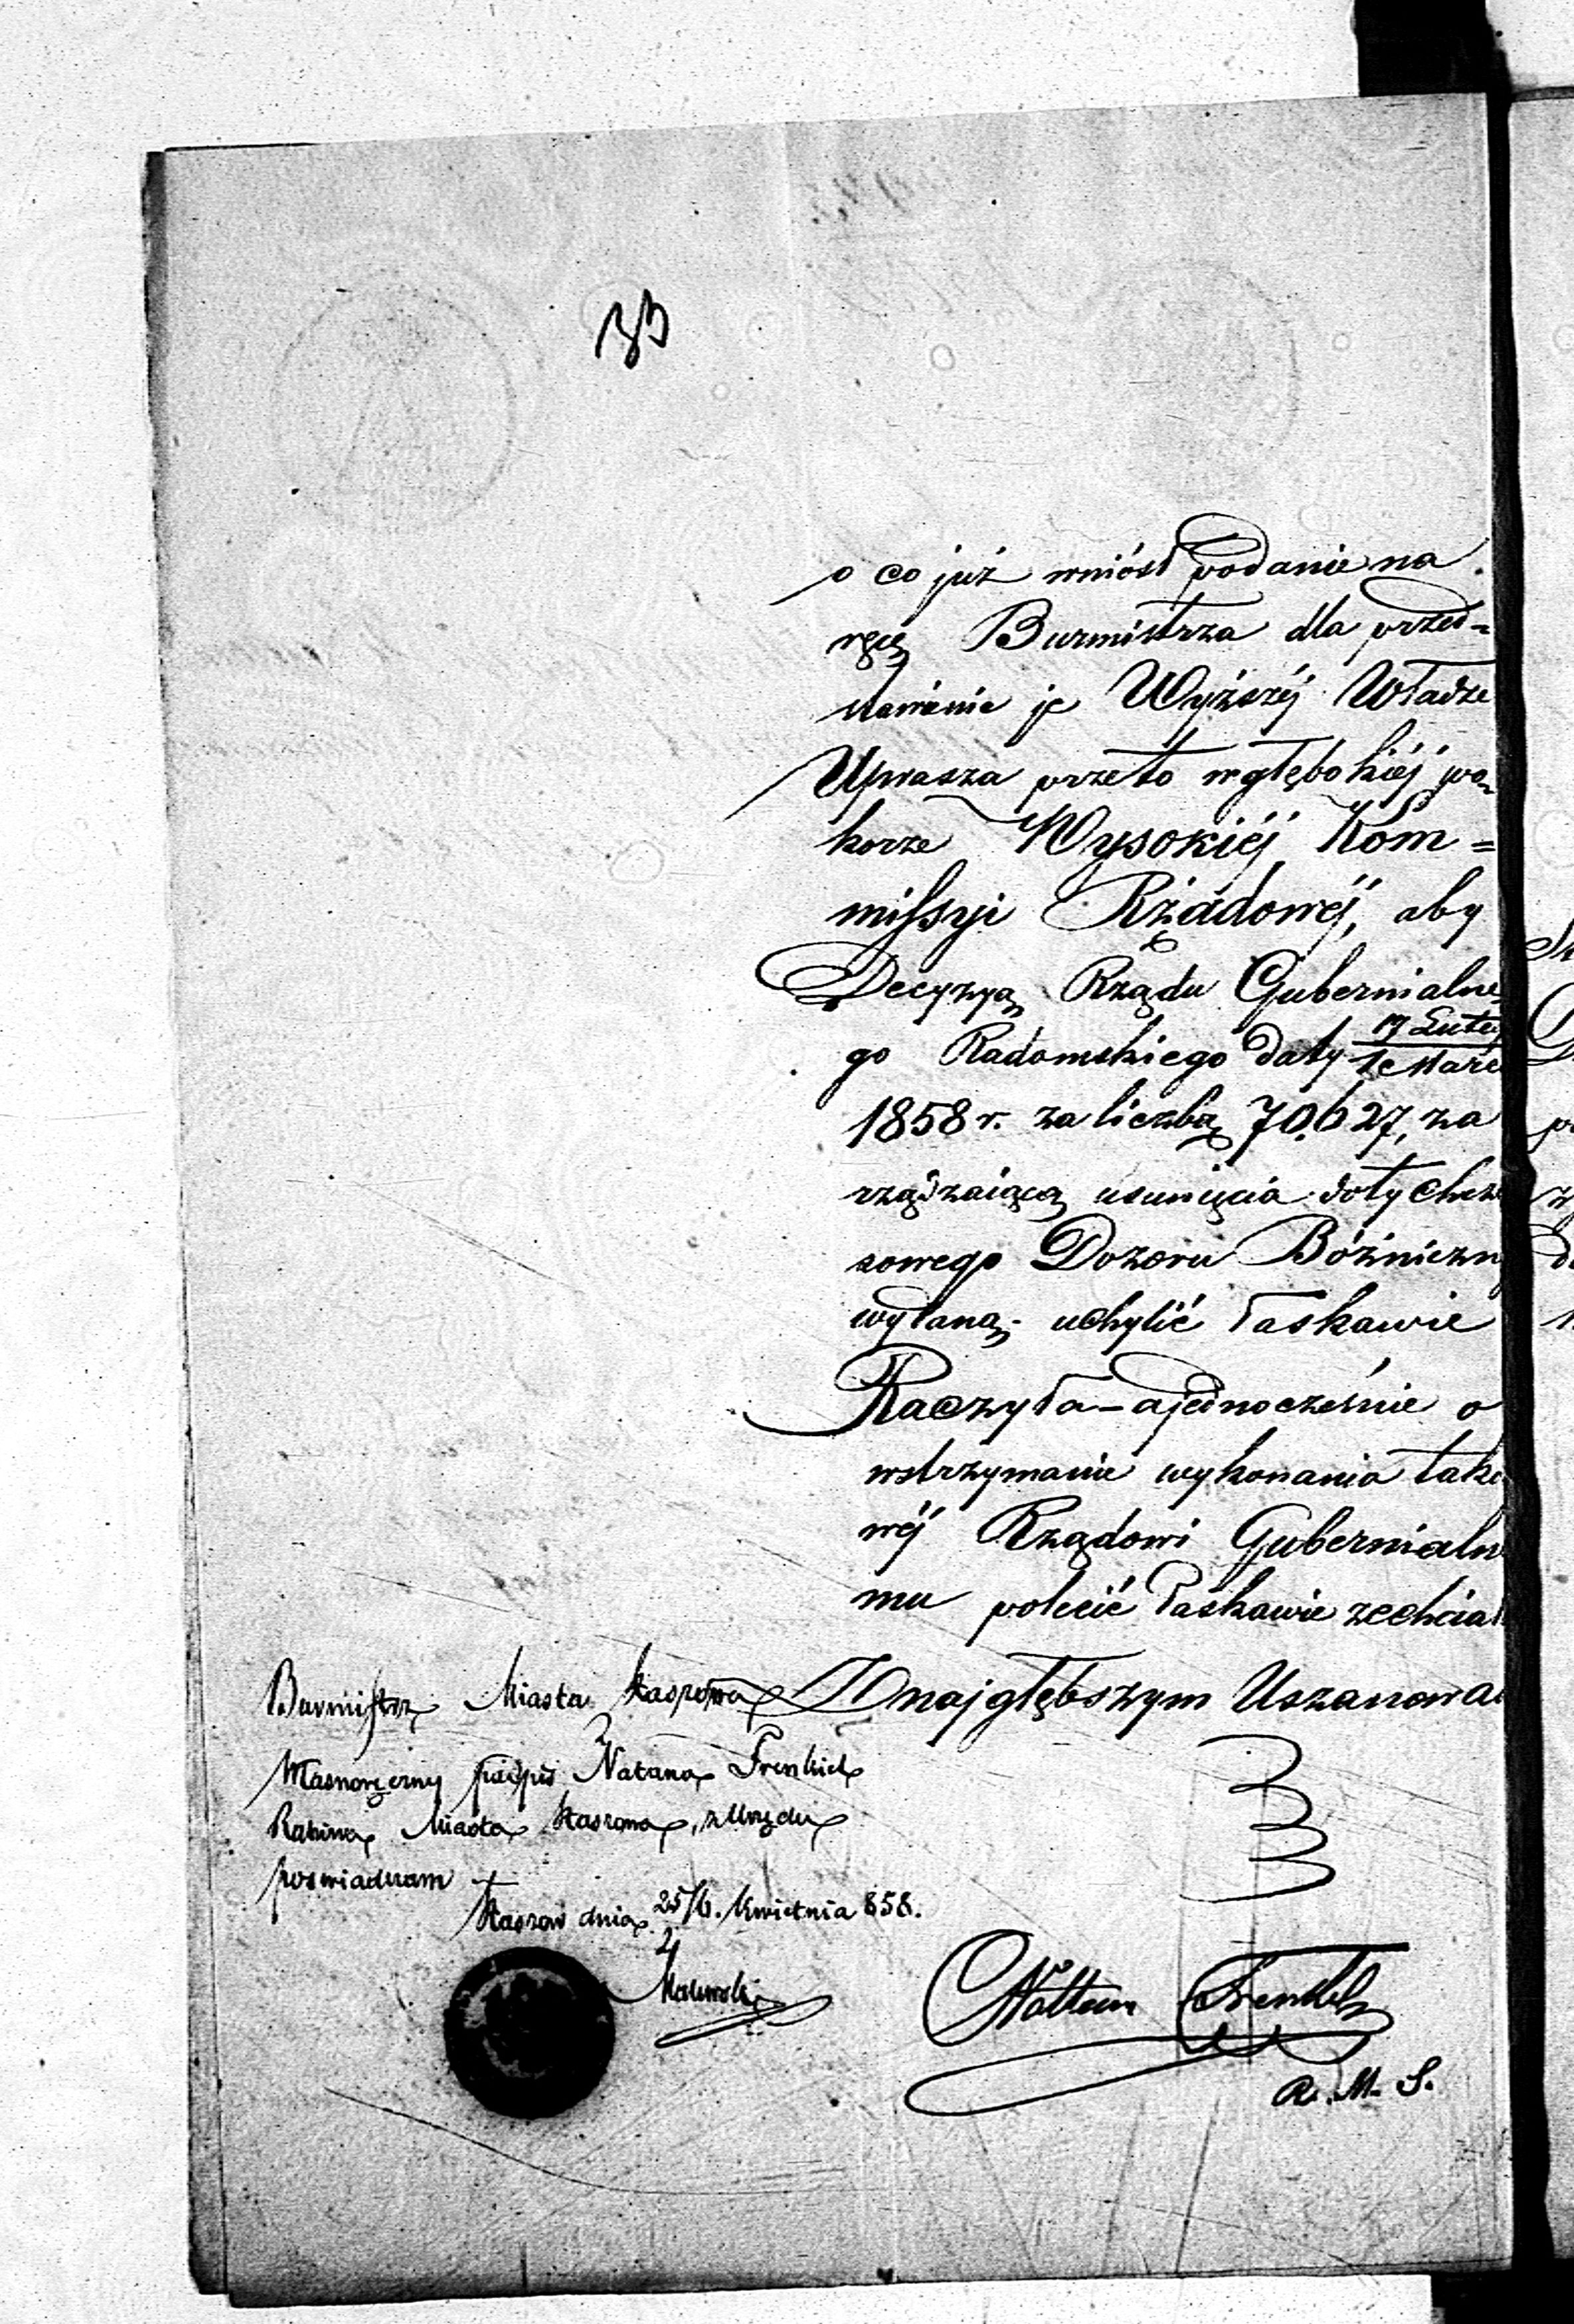 33
o co już wniósł podanie na
ręcę Burmistrza dla przed=
stawienia je Wyższéj Władze
Uprasza przeto w głębokiéj po=
korze Wysokiéj Kom=
missyi Rządowéj, aby
Decyzyą Rządu Gubernialne
go Radomskiego daty 17 Lutego
1858 r. za liczbą 70.627, za
rządzaiącą usunięcia dotychcza
sowego Dozoru Bóżniczn
wydaną; uchylić łaskawie
Raczyła – a jednocześnie o
wstrzymanie wykonania tako
wéj Rządowi Gubernialn
mu polecić łaskawie zechciał
Z najgłębszym Uszanowa
Burmistrz Miasta Staszowa
Własnoręczny podpis Natana Frenkiel
Rabina Miasta Staszowa, z Urzędu
poswiadczam
Staszow dnia 25/ Kwietnia 858.
Nattan Frenkel
R. M. S.